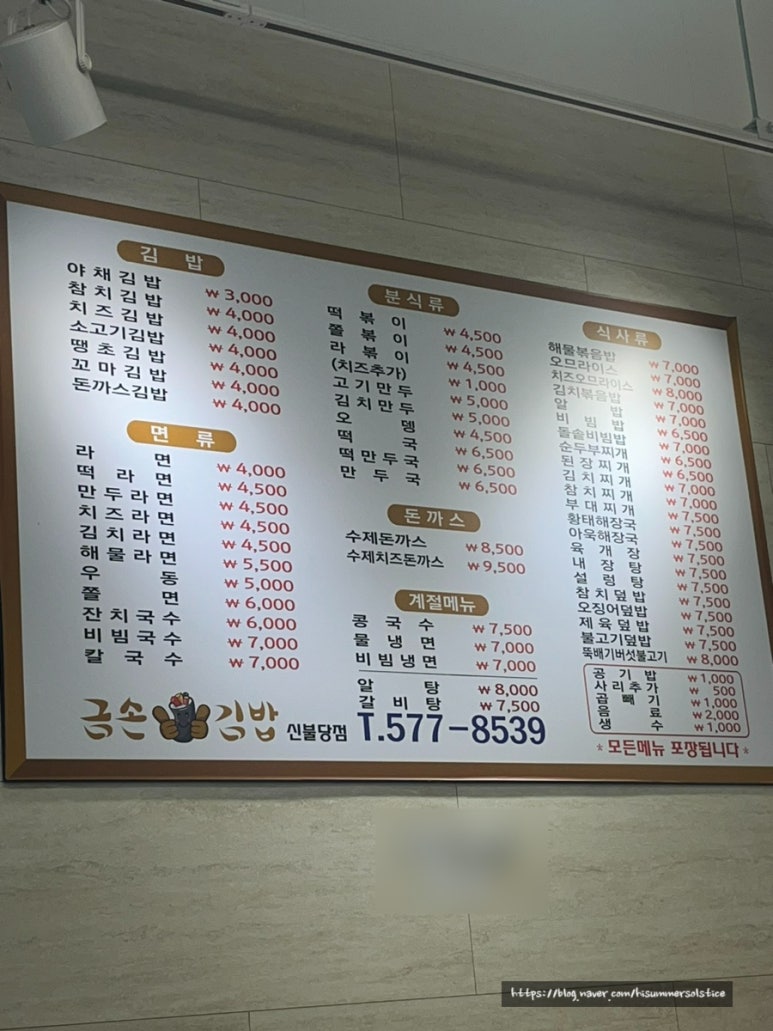 김밥
야채김밥 ₩3,000
참치김밥 ₩4,000
치즈김밥 ₩4,000
소고기김밥 ₩4,000
땡초김밥 ₩4,000
꼬마김밥 ₩4,000
돈까스김밥 ₩4,000
면류
라면 ₩4,000
떡라면 ₩4,500
만두라면 ₩4,500
치즈라면 ₩4,500
김치라면 ₩4,500
해물라면 ₩5,500
우동 ₩5,000
쫄면 ₩6,000
잔치국수 ₩6,000
비빔국수 ₩7,000
칼국수 ₩7,000
분식류
떡볶이 ₩4,500
쫄볶이 ₩4,500
라볶이 ₩4,500
(치즈추가) ₩1,000
고기만두 ₩5,000
김치만두 ₩5,000
오뎅 ₩4,500
떡국 ₩6,500
떡만두국 ₩6,500
만두국 ₩6,500
돈까스
수제돈까스 ₩8,500
수제치즈돈까스 ₩9,500
계절메뉴
콩국수 ₩7,500
물냉면 ₩7,000
비빔냉면 ₩7,000
알탕 ₩8,000
갈비탕 ₩7,500
식사류
해물볶음밥 ₩7,000
오므라이스 ₩7,000
치즈오므라이스 ₩8,000
김치볶음밥 ₩7,000
알밥 ₩7,000
비빔밥 ₩6,500
돌솥비빔밥 ₩7,000
순두부찌개 ₩6,500
된장찌개 ₩6,500
김치찌개 ₩7,000
참치찌개 ₩7,000
부대찌개 ₩7,500
황태해장국 ₩7,500
아욱해장국 ₩7,500
육개장 ₩7,500
내장탕 ₩7,500
설렁탕 ₩7,500
참치덮밥 ₩7,500
오징어덮밥 ₩7,500
제육덮밥 ₩7,500
불고기덮밥 ₩7,500
뚝배기버섯불고기 ₩8,000
공기밥 ₩1,000
사리추가 ₩500
곱빼기 ₩1,000
음료 ₩2,000
생수 ₩1,000
* 모든메뉴 포장됩니다 *
금손김밥 신불당점 T.577-8539
https://blog.naver.com/hisummersolstice